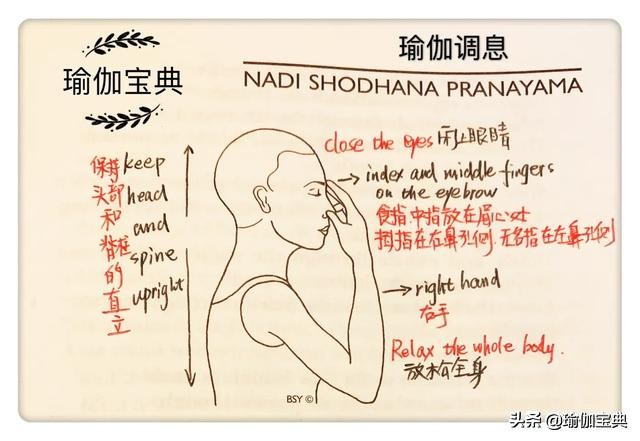 瑜伽宝典
瑜伽调息
NADI SHODHANA PRANAYAMA
close the eyes 闭上眼睛
index and middle fingers
on the eyebrow
食指中指放在眉心处
拇指在右鼻孔侧.无名指在左鼻孔侧
保持头部和脊柱的直立
keep
head
and
spine
upright
right hand
右手
Relax the whole body.
放松全身
BSY ©
头条 @瑜伽宝典